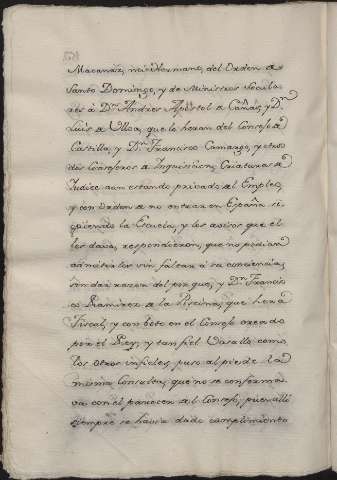 Macanàz, mi Hermano, del Orden de
Santo Domingo, y de Ministros Secula-
res à Dn. Andres Apòstol de Cañas, y Dn.
Luis de Ulloa, que lo heran del Consejo de
Castilla, y Dn. Francisco Camargo, y otros
dos Consejeros de Inquisicion, Criaturas de
Judice aun estando privado del Empleo,
y con Orden de no entrar en España si-
guiendo la Escuela, y los avisos que èl
les dava, respondieron, que no podian
admitirlos sin faltar à su conciencia,
sin dar razon del por que, y Dn. Francis-
co Ramirez de la Piscina, que hera
Fiscal, y con boto en el Consejo creado
por el Rey, y tan fiel Vasallo como
los otros infieles, puso al pie de la
misma Consulta, que no se conforma-
va con el parecer del Consejo, pues alli
siempre se havia dado cumplimiento